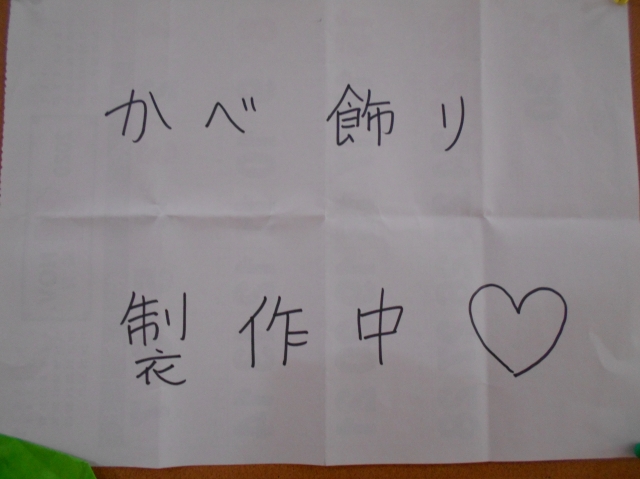 かべ飾り
製作中♡